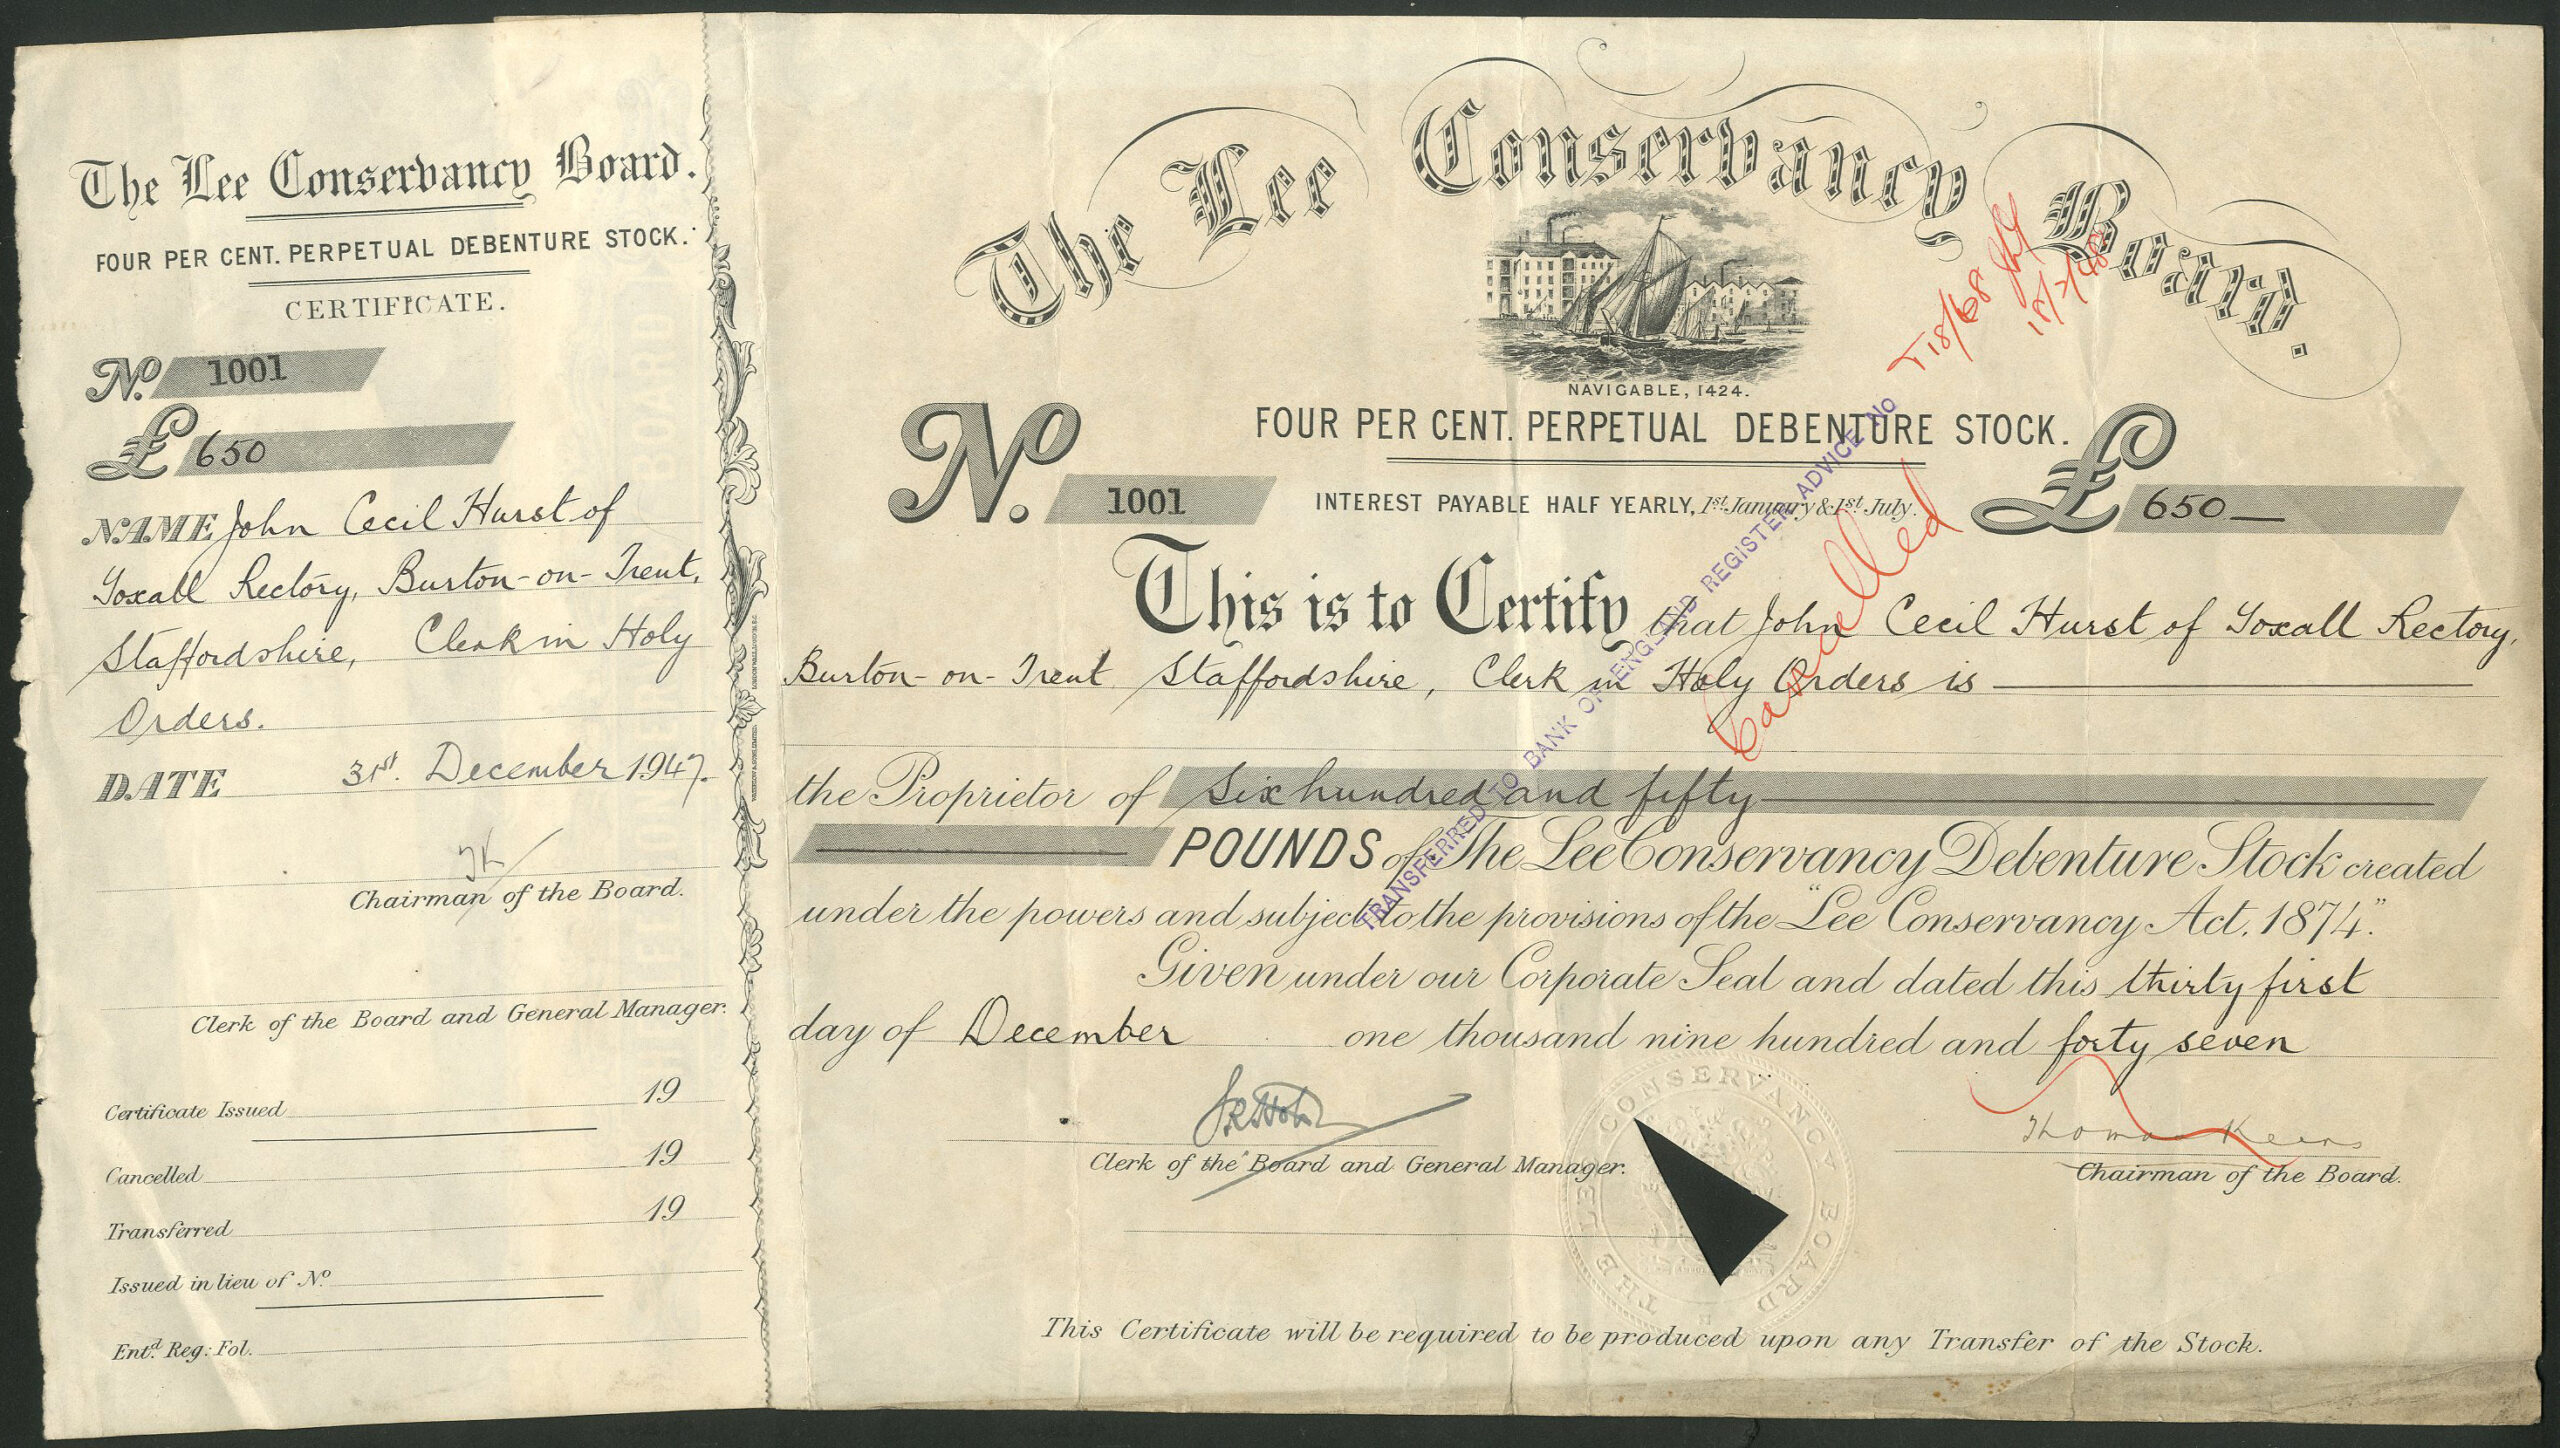 The Lee Conservancy Board.
FOUR PER CENT. PERPETUAL DEBENTURE STOCK.
CERTIFICATE.
No. 1001
£ 650
NAME John Cecil Hurst of
Yoxall Rectory, Burton-on-Trent,
Staffordshire, Clerk in Holy
Orders.
DATE 31st. December 1947.
Chairman of the Board.
Clerk of the Board and General Manager.
Certificate Issued 19
Cancelled 19
Transferred 19
Issued in lieu of No.
Entd. Reg: Fol.
The Lee Conservancy Board.
NAVIGABLE, 1424.
FOUR PER CENT. PERPETUAL DEBENTURE STOCK.
No. 1001
INTEREST PAYABLE HALF YEARLY, 1st. January & 1st. July.
£ 650
This is to Certify that John Cecil Hurst of Yoxall Rectory,
Burton-on-Trent Staffordshire, Clerk in Holy Orders is
the Proprietor of Six hundred and fifty
POUNDS of The Lee Conservancy Debenture Stock created
under the powers and subject to the provisions of the "Lee Conservancy Act, 1874."
Given under our Corporate Seal and dated this thirty first
day of December one thousand nine hundred and forty seven
Clerk of the Board and General Manager.
Thomas Keens
Chairman of the Board.
THE LEE CONSERVANCY BOARD
This Certificate will be required to be produced upon any Transfer of the Stock.
TRANSFERRED TO BANK OF ENGLAND REGISTER ADVICE No T18/68
18/7/48
Cancelled